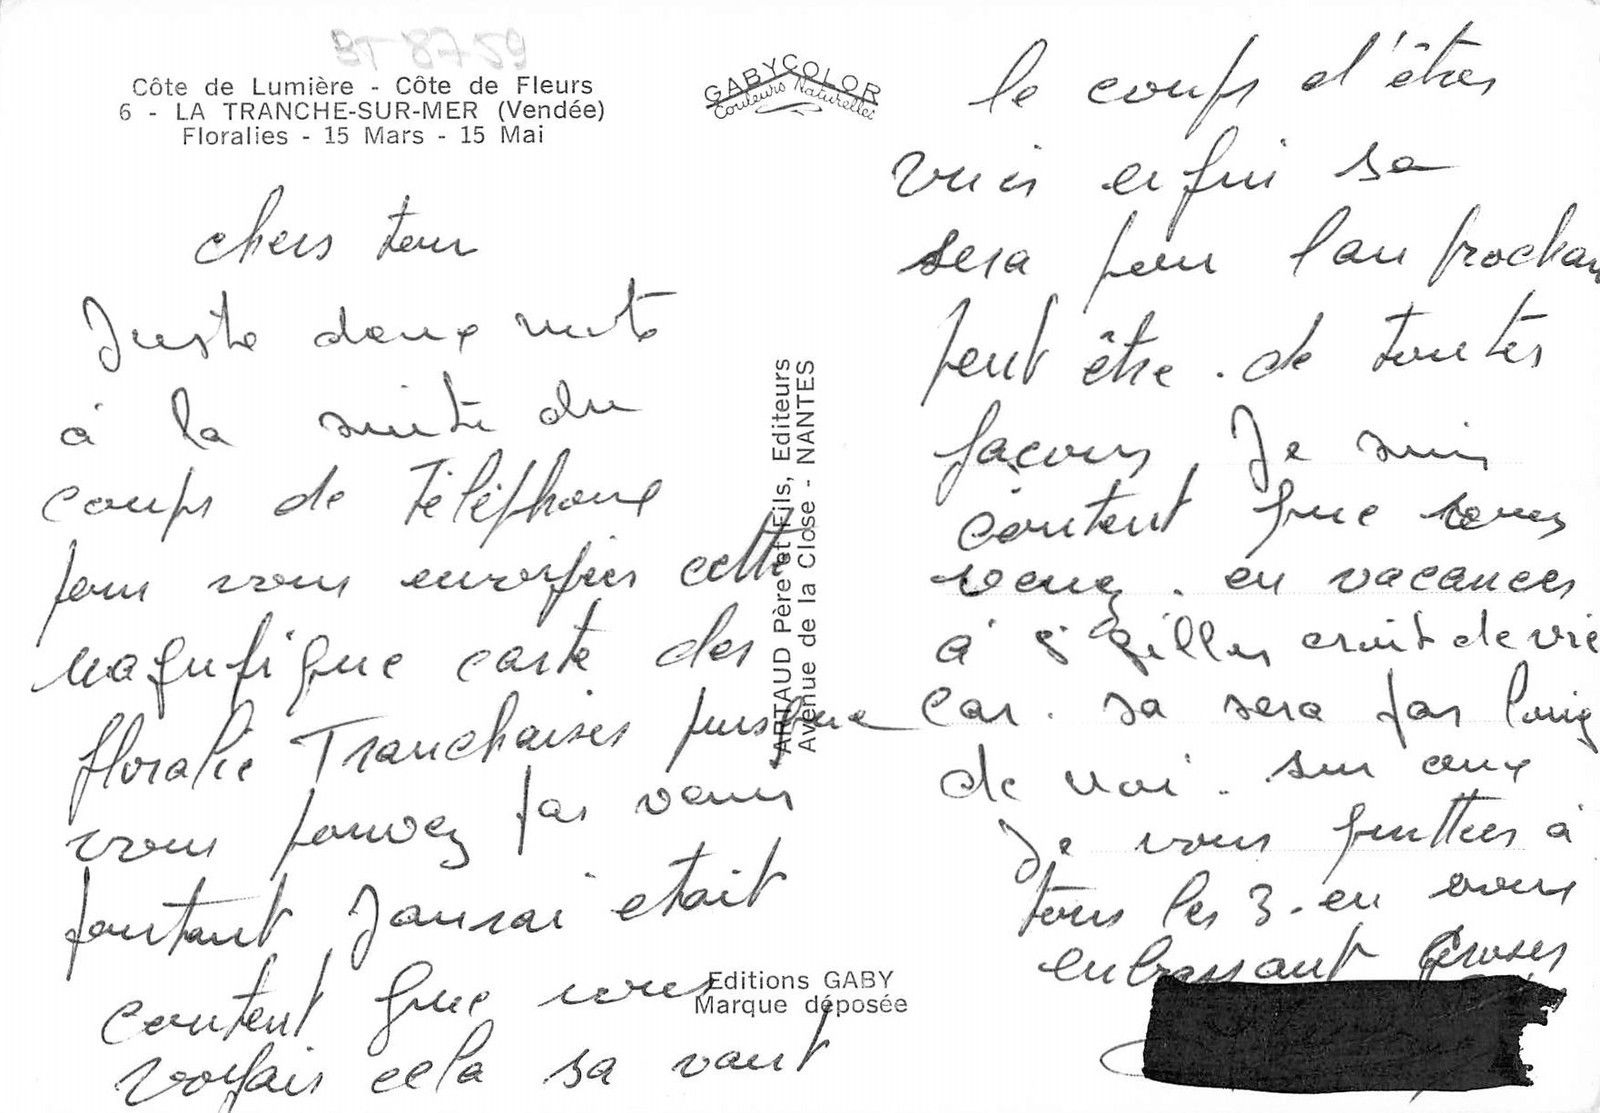 BT 8759
Côte de Lumière - Côte de Fleurs
6 - LA TRANCHE-SUR-MER (Vendée)
Floralies - 15 Mars - 15 Mai
GABYCOLOR
Couleurs Naturelles
chers tous
Juste deux mots
à la suite du
coups de Téléphone
pour vous envoyer cette
magnifique carte des
floralie Tranchaises puisque
vous pouvez pas venir
pourtant Jaurai etait
content que vous
voyais cela sa vaut
ARTAUD Père et Fils, Editeurs
Avenue de la Close - NANTES
Editions GABY
Marque déposée
le coups d'êtres
vues enfin sa
sera pour l'an prochain
peut être. de toutes
façons Je suis
content que vous
venez. en vacances
à St Gilles croix de vie
car. sa sera pas loing
de moi. sur ceux
Je vous quittes à
tous les 3. en vous
enbrassant Groses